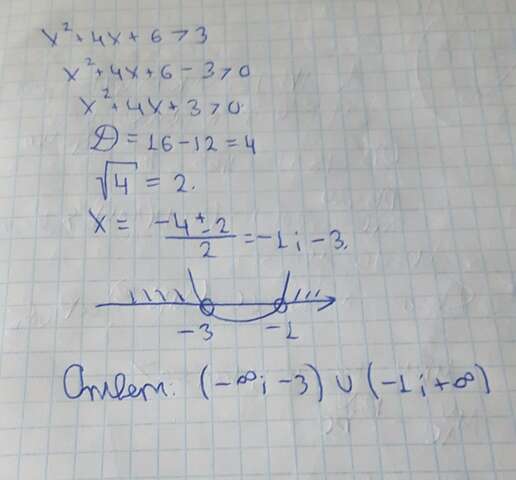 x² + 4x + 6 > 3
x² + 4x + 6 - 3 > 0
x² + 4x + 3 > 0
D = 16 - 12 = 4
√4 = 2.
x = (-4 ± 2)/2 = -1; -3.
-3 -1
Ответ: (-∞; -3) ∪ (-1; +∞)